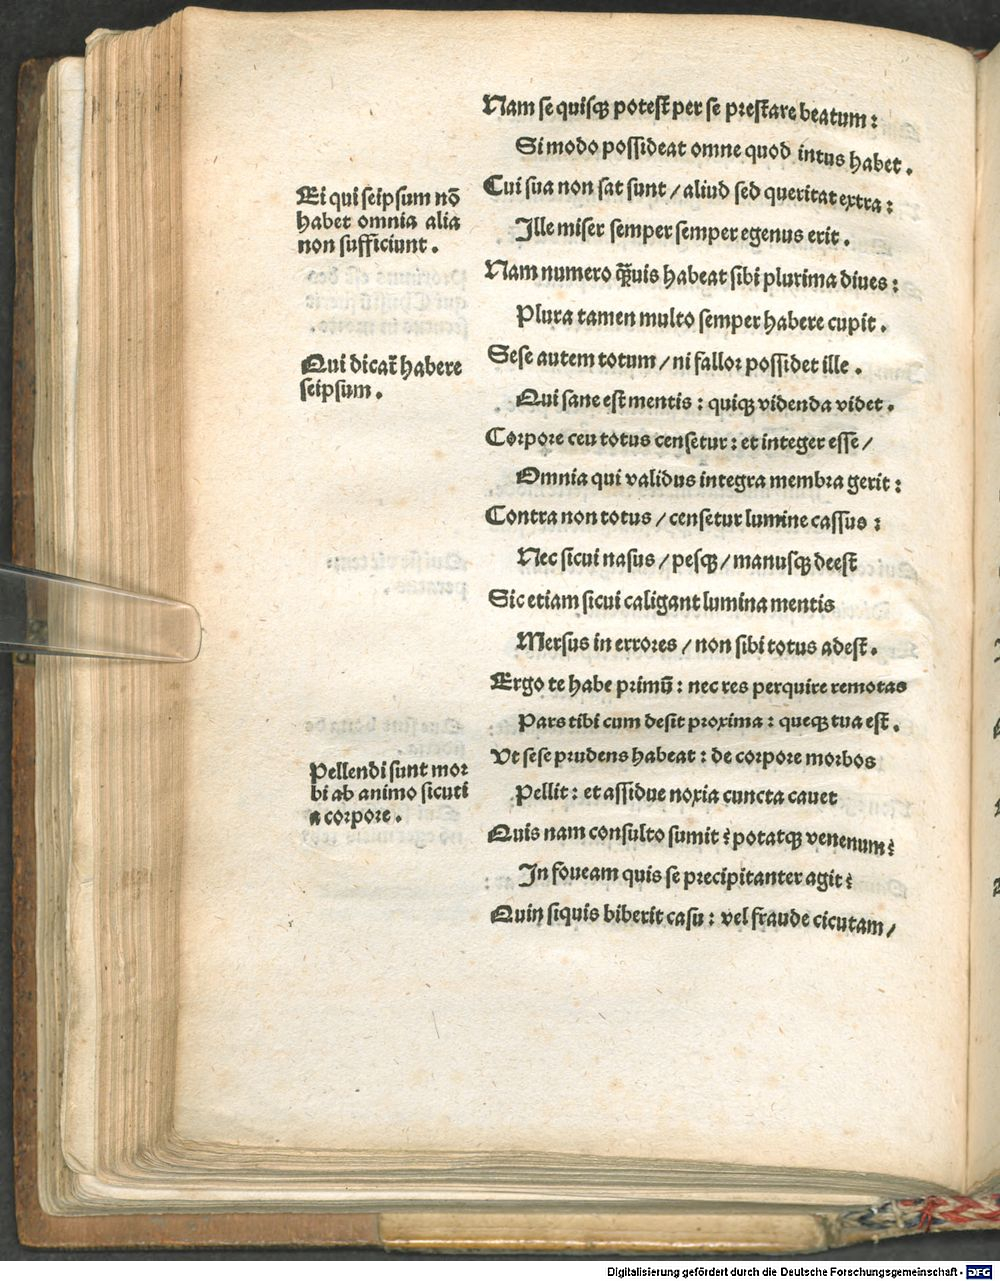 Nam se quisqꝫ potest per se prestare beatum :
Si modo possideat omne quod intus habet .
Ei qui seipsum nō
habet omnia alia
non sufficiunt .
Cui sua non sat sunt / aliud sed queritat extra :
Ille miser semper semper egenus erit .
Nam numero q̄uis habeat sibi plurima diues :
Plura tamen multo semper habere cupit .
Qui dicat̄ habere
seipsum .
Sese autem totum / ni fallor possidet ille .
Qui sane est mentis : quiqꝫ videnda videt .
Corpore ceu totus censetur : et integer esse /
Omnia qui validus integra membra gerit :
Contra non totus / censetur lumine cassus :
Nec sicui nasus / pesqꝫ / manusqꝫ deest
Sic etiam sicui caligant lumina mentis
Mersus in errores / non sibi totus adest .
Ergo te habe primū : nec res perquire remotas
Pars tibi cum desit proxima : queqꝫ tua est .
Vt sese prudens habeat : de corpore morbos
Pellendi sunt mor
bi ab animo sicuti
a corpore .
Pellit : et assidue noxia cuncta cauet
Quis nam consulto sumit ? potatqꝫ venenum ?
In foueam quis se precipitanter agit ?
Quin siquis biberit casu : vel fraude cicutam /
Digitalisierung gefördert durch die Deutsche Forschungsgemeinschaft - DFG